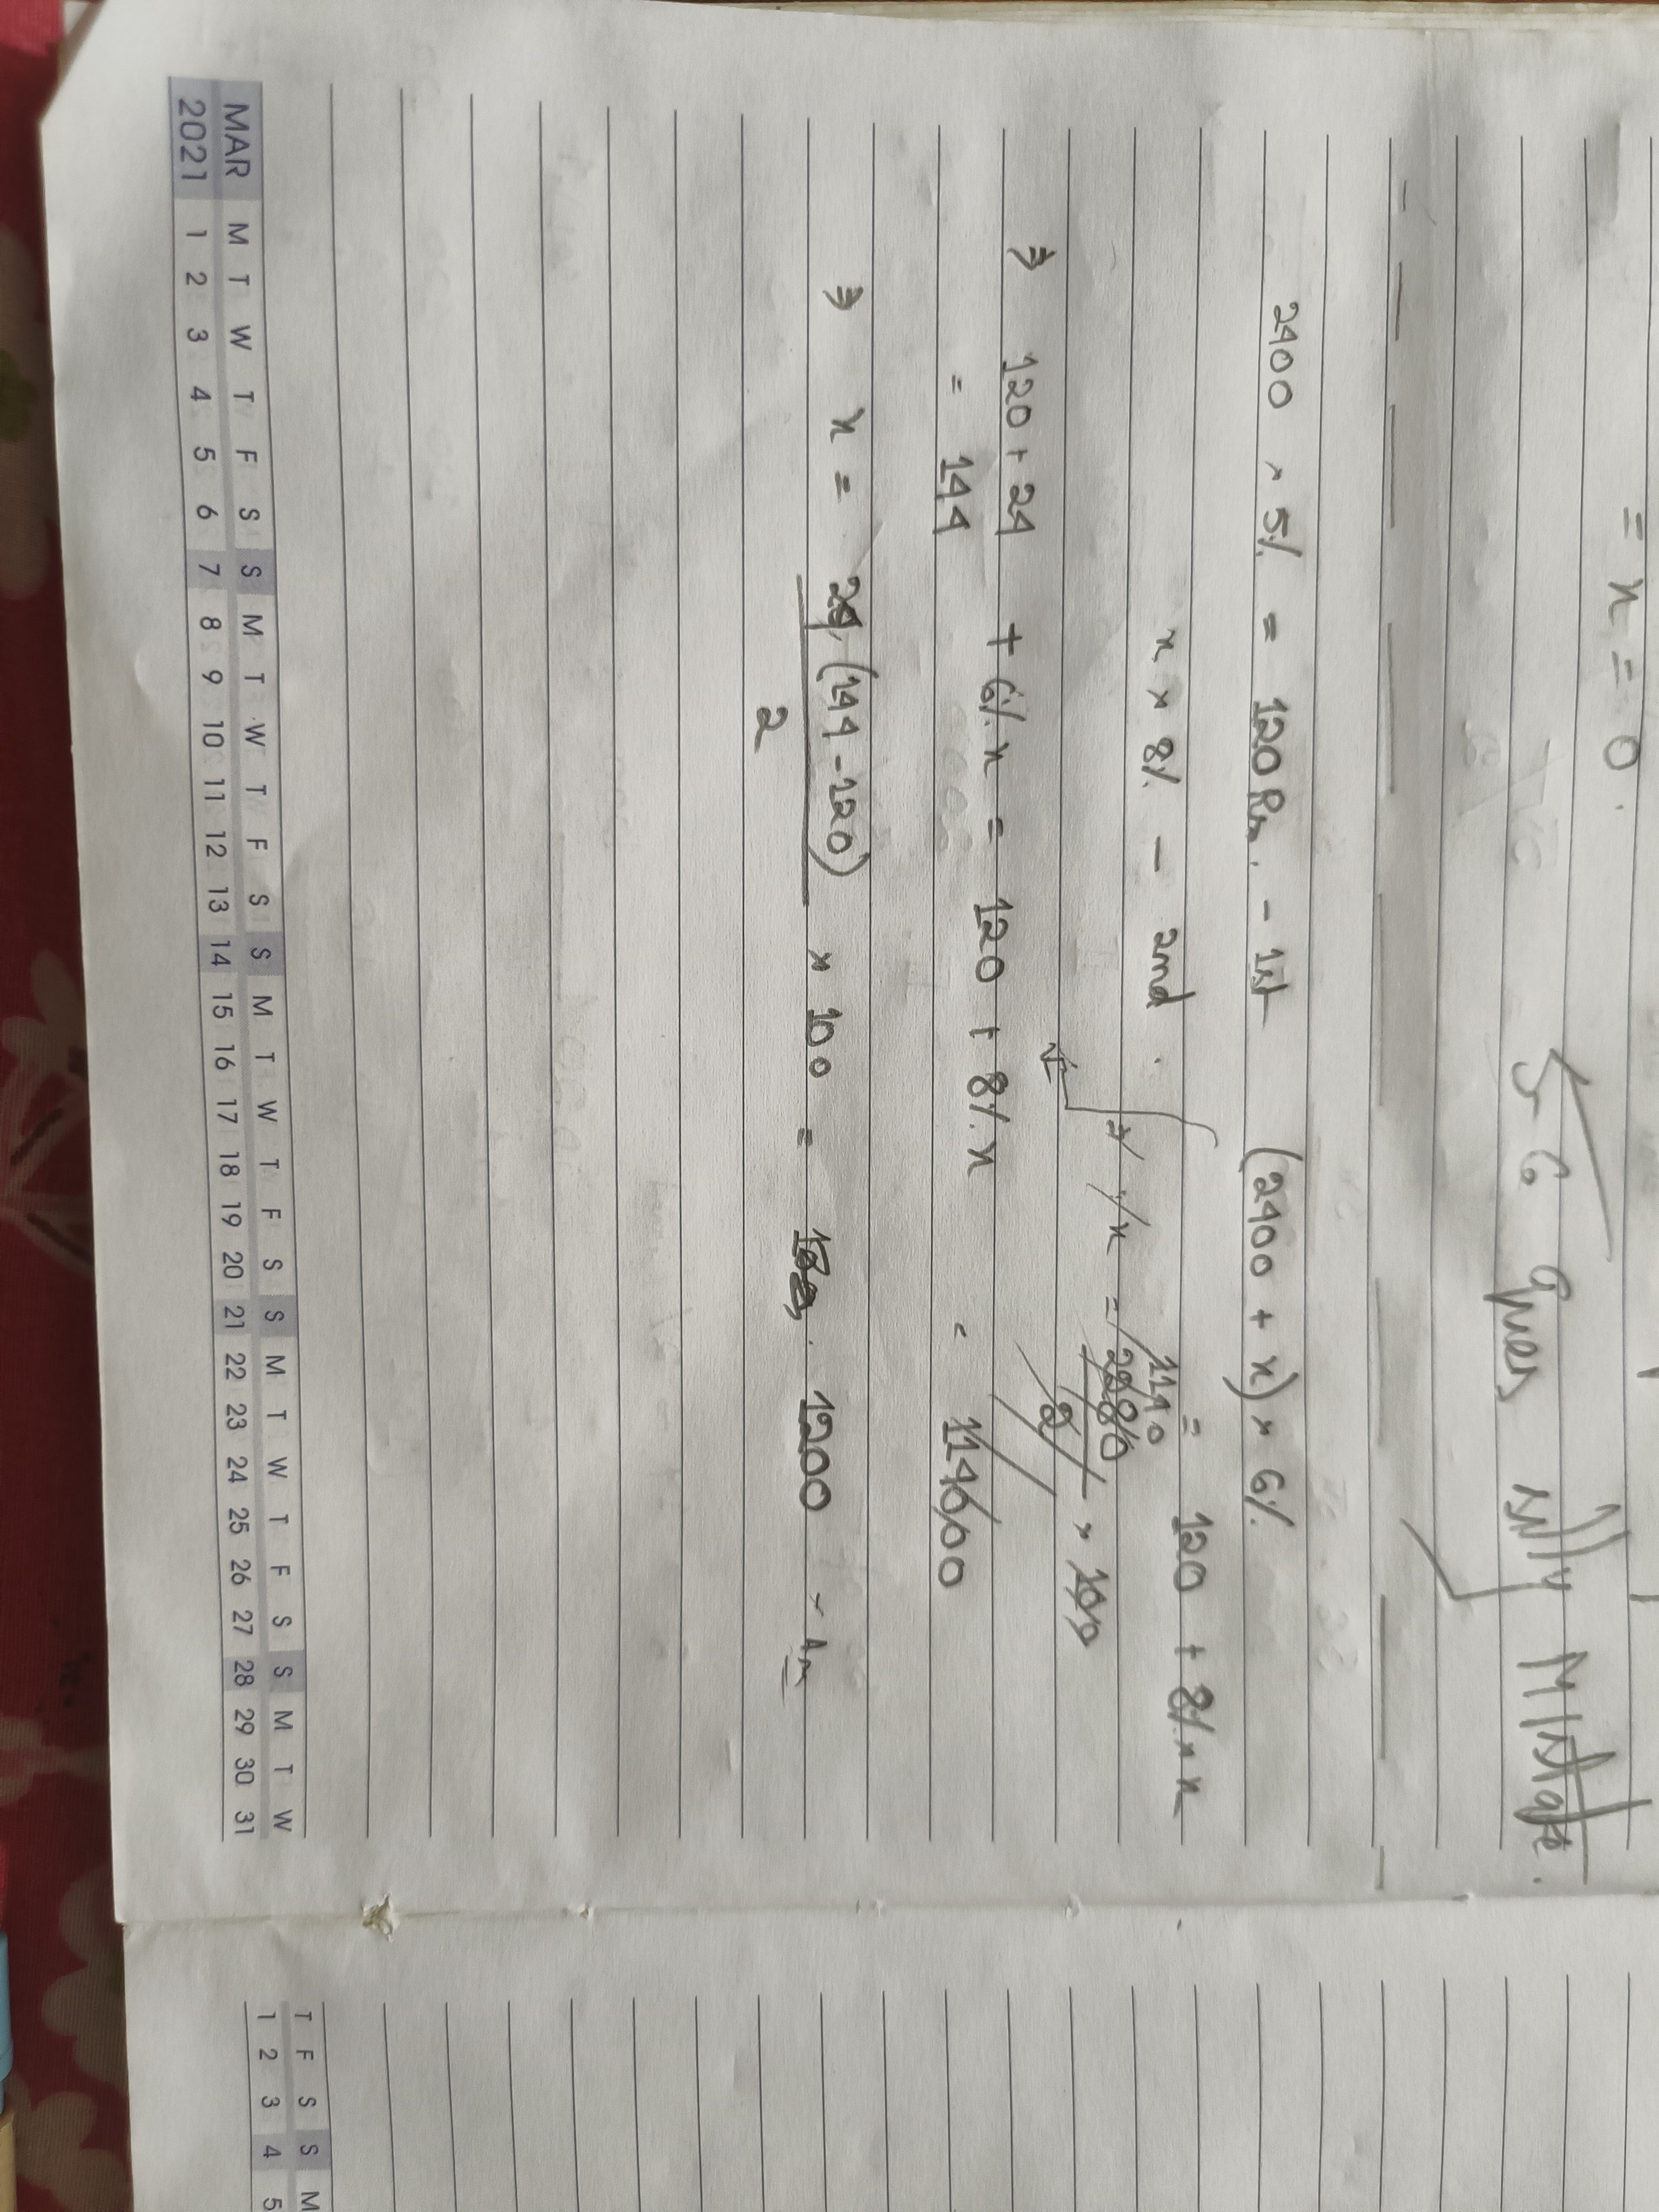 = x = 0.
5-6 Ques
2400 × 5% = 120 Rs. - 1st (2400 + x) × 6%
= 120 + 8% × x
x × 8% - 2nd.
x = 2280 × 100
1140
2
⇒ 120 + 24 + 6% x = 120 + 8% x
= 144
= 114000
⇒ x = 24 (144 - 120) × 100 = 1200 - An
2
MAR M T W T F S S M T W T F S S M T W T F S S M T W T F S S M T W
2021 1 2 3 4 5 6 7 8 9 10 11 12 13 14 15 16 17 18 19 20 21 22 23 24 25 26 27 28 29 30 31
T F S S M
1 2 3 4 5